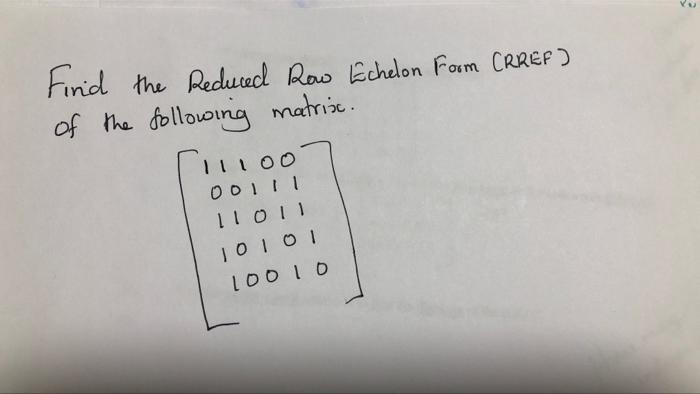 Find the Reduced Row Echelon Form (RREF)
of the following matrix.
1 1 1 0 0
0 0 1 1 1
1 1 0 1 1
1 0 1 0 1
1 0 0 1 0